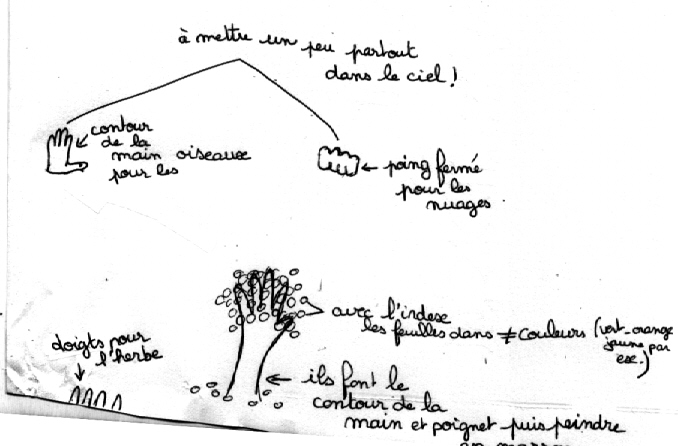 à mettre un peu partout
dans le ciel !
contour
de la
main oiseaux
pour les
poing fermé
pour les
nuages
avec l'index
les feuilles dans ≠ couleurs (vert-orange
jaune par
ex.)
doigts pour
l'herbe
ils font le
contour de la
main et poignet puis peindre